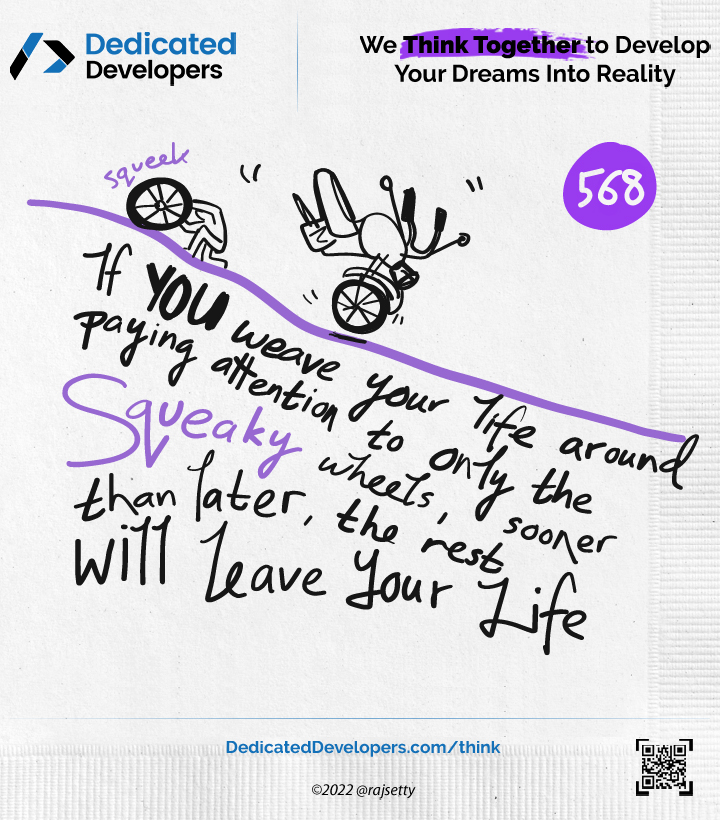 Dedicated
Developers
We Think Together to Develop
Your Dreams Into Reality
squeek
568
If YOU weave your life around
paying attention to only the
Squeaky wheels, sooner
than later, the rest
will leave your Life
DedicatedDevelopers.com/think
©2022 @rajsetty